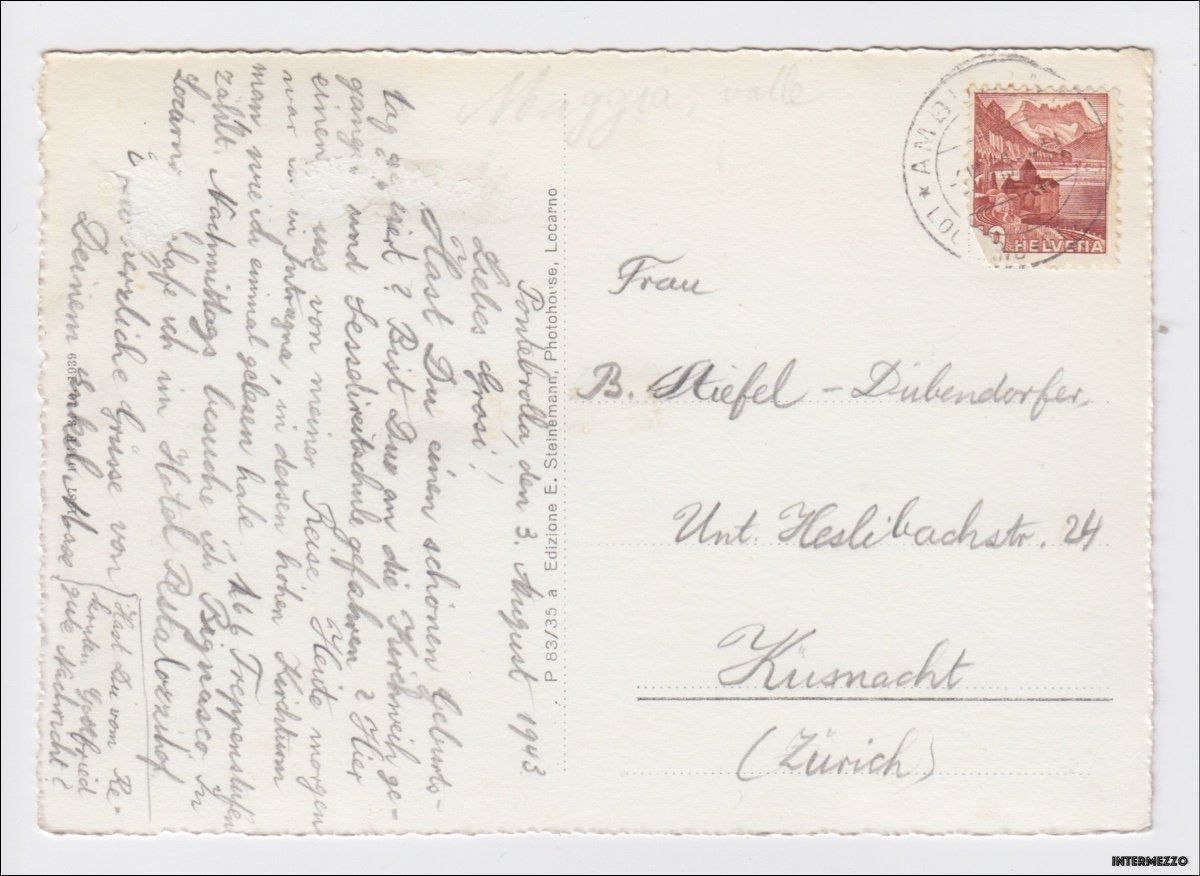 Maggia, valle
Pontebrolla, den 3. August 1943.
Liebes Grosi!
Hast Du einen schönen Geburts-
tag gefeiert? Bist Du an die Kirchweih ge-
gangen und Sesselireitschule gefahren? Hier
einen Gruss von meiner Reise. Heute morgen
war ich in Intragna, in dessen hohen Kirchturm
man, wie ich einmal gelesen habe, 166 Treppenstufen
zählt. Nachmittags besuche ich Bignasco. In
Locarno schlafe ich im Hotel Pestalozzihof
herzliche Grüsse von
Deinem Enkel
Hast Du vom Re-
kruten Gottfried
gute Nachricht?
P 83/35 a Edizione E. Steinemann, Photohouse, Locarno
AMBU
LOC
HELVETIA
Frau
B. Stiefel - Dübendorfer,
Unt. Heslibachstr. 24
Küsnacht
(Zürich)
INTERMEZZO